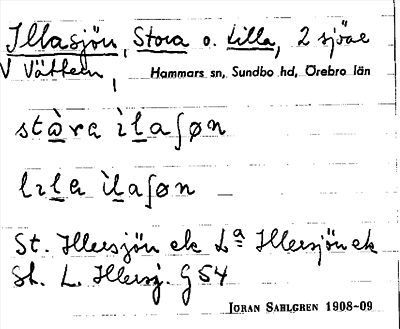 Illasjön, Stora o. Lilla, 2 sjöar
V Vättern,
Hammars sn, Sundbo hd, Örebro län
stὰra ìlaʃøn
lɩla ìlaʃøn
St. Illersjön ek La Illersjön ek
St. L. Illersj. G 54
JÖRAN SAHLGREN 1908-09